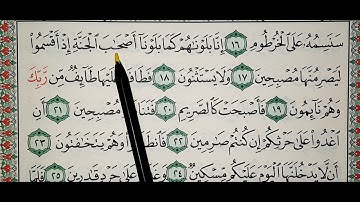 سَنَسِمُهُۥ عَلَى ٱلْخُرْطُومِ ١٦ إِنَّا بَلَوْنَٰهُمْ كَمَا بَلَوْنَآ أَصْحَٰبَ ٱلْجَنَّةِ إِذْ أَقْسَمُوا۟
لَيَصْرِمُنَّهَا مُصْبِحِينَ ١٧ وَلَا يَسْتَثْنُونَ ١٨ فَطَافَ عَلَيْهَا طَآئِفٌ مِّن رَّبِّكَ
وَهُمْ نَآئِمُونَ ١٩ فَأَصْبَحَتْ كَٱلصَّرِيمِ ٢٠ فَتَنَادَ مُصْبِحِينَ ٢١ أَنِ
ٱغْدُوا۟ عَلَىٰ حَرْثِكُمْ إِن كُنتُمْ صَٰرِمِينَ ٢٢ فَٱنطَلَقُ وَهُمْ يَتَخَٰفَتُونَ ٢٣
أَن لَّا يَدْخُلَنَّهَا ٱلْيَوْمَ عَلَيْكُم مِّسْكِينٌ ٢٤ عَلَىٰ حَرْدٍ قَٰدِرِينَ ٢٥ فَلَمَّا